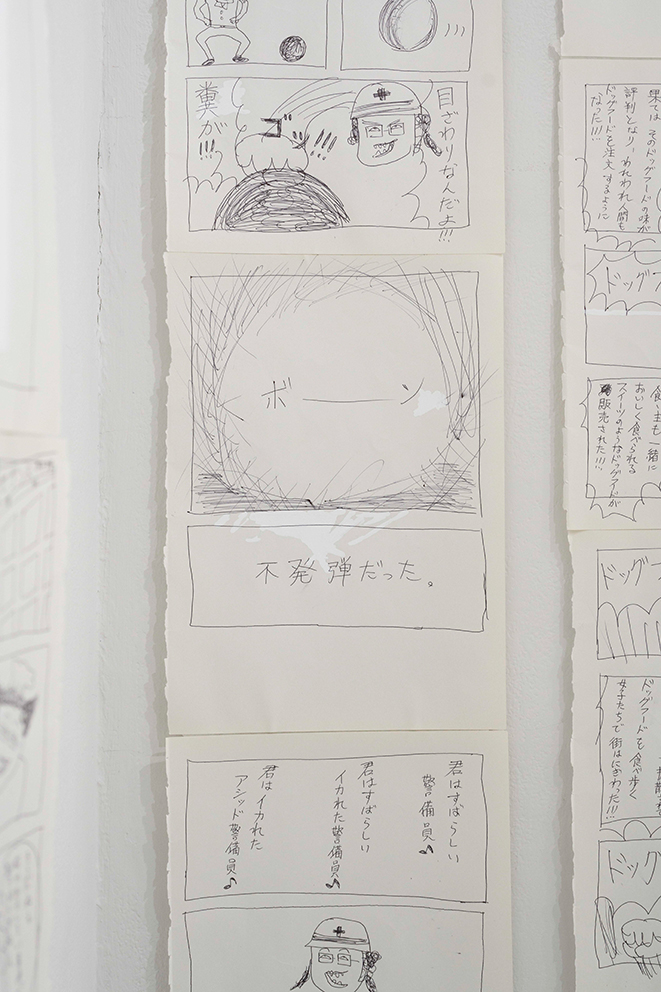 目ざわりなんだよ!!!
糞が!!!
ボーン
不発弾だった。
君はすばらしい
警備員♪
君はすばらしい
イカれた警備員♪
君はイカれた
アシッド警備員♪
果ては そのドッグフードの味が
評判となり、われわれ人間も
ドッグフードを注文するように
なった!!!
ドッグフ
飼い主も一緒に
おいしく食べられる
スイーツのようなドッグフードが
販売された!!!
ドッグフ
ドッグフードを食べ歩く
女子たちで街はにぎわった!!!
ドッグ